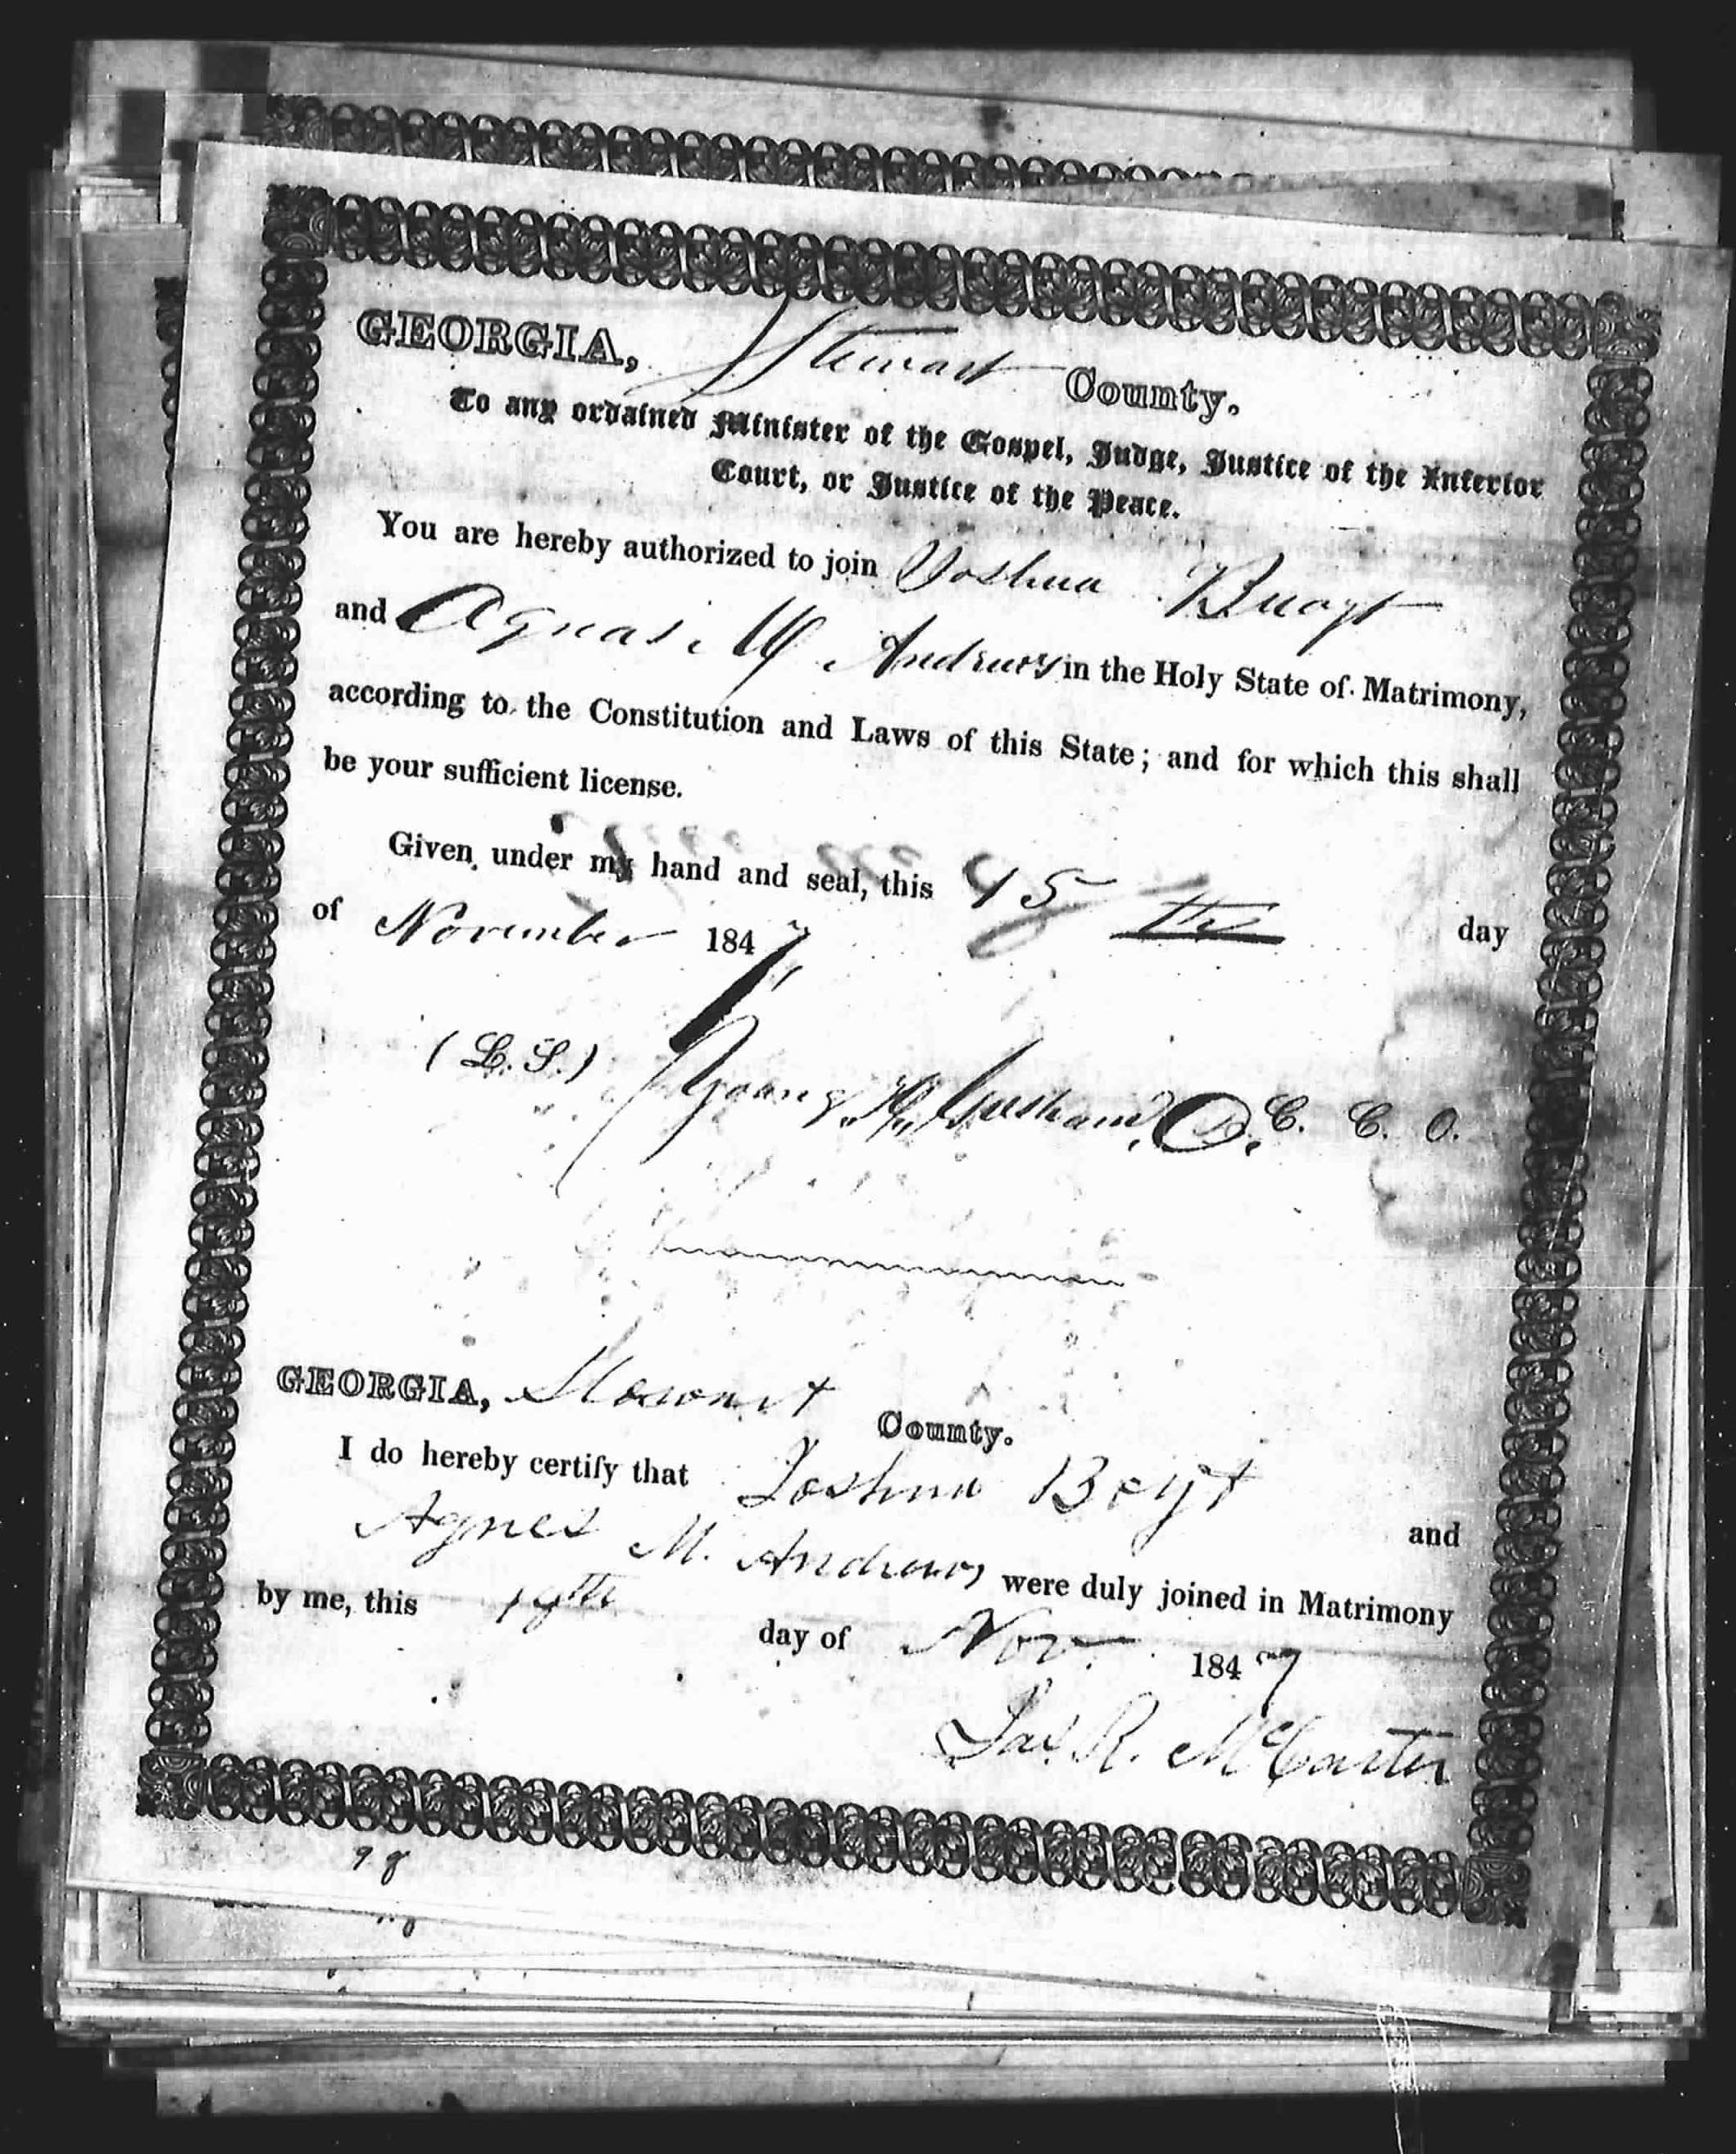 GEORGIA, Stewart County.
To any ordained Minister of the Gospel, Judge, Justice of the Inferior
Court, or Justice of the Peace.
You are hereby authorized to join Joshua Buoyt
and Agnas M. Andrews in the Holy State of Matrimony,
according to the Constitution and Laws of this State; and for which this shall
be your sufficient license.
Given under my hand and seal, this 15 th day
of November 1847
(L.S.) Young H. D. C. C. O.
GEORGIA, Stewart County.
I do hereby certify that Joshua Boyt and
Agnes M. Andrews were duly joined in Matrimony
by me, this 19th day of Nov. 1847
Jas. R. McCarter
98